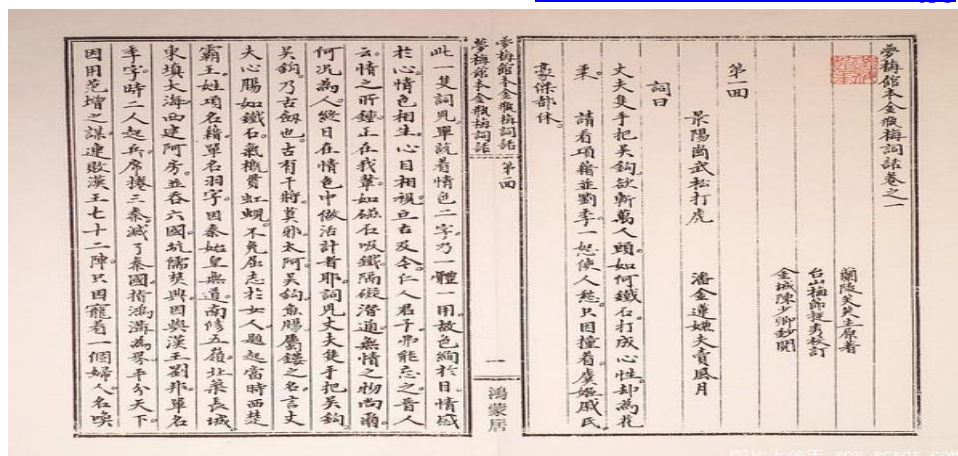 夢梅館本金瓶梅詞話卷之一
蘭陵笑笑生原著
台山梅節校訂
金城陳少卿鈔閱
第一回
景陽崗武松打虎 潘金蓮嫌夫賣風月
詞曰
丈夫隻手把吳鈎。欲斬萬人頭。如何鐵石打成心性。却為花
柔。 請看項籍並劉季。一怒使人愁。只因撞着虞姬戚氏。
豪傑都休。
夢梅館本金瓶梅詞話 第一回
一
鴻蒙居
夢梅館本金瓶梅詞話
此一隻詞兒。單說着情色二字。乃一體一用。故色絢於目。情感
於心。情色相生。心目相視。亘古及今。仁人君子。弗能忘之。晉人
云。情之所鍾。正在我輩。如磁石吸鐵。隔礙潛通。無情之物尚爾。
何況為人。終日在情色中做活計者耶。詞兒丈夫隻手把吳鈎。
吳鈎。乃古劍也。古有干將莫邪太阿吳鈎魚腸屬鏤之名。言丈
夫心腸如鐵石。氣概貫虹蜺。不免屈志於女人。題起當時西楚
霸王。姓項名籍。單名羽字。因秦始皇無道。南修五嶺。北築長城。
東填大海。西建阿房。並吞六國。坑儒焚典。因與漢王劉邦。單名
季字。時二人起兵。席捲三秦。滅了秦國。指鴻溝為界。平分天下。
因用范增之謀。連敗漢王七十二陣。只因寵着一個婦人。名喚